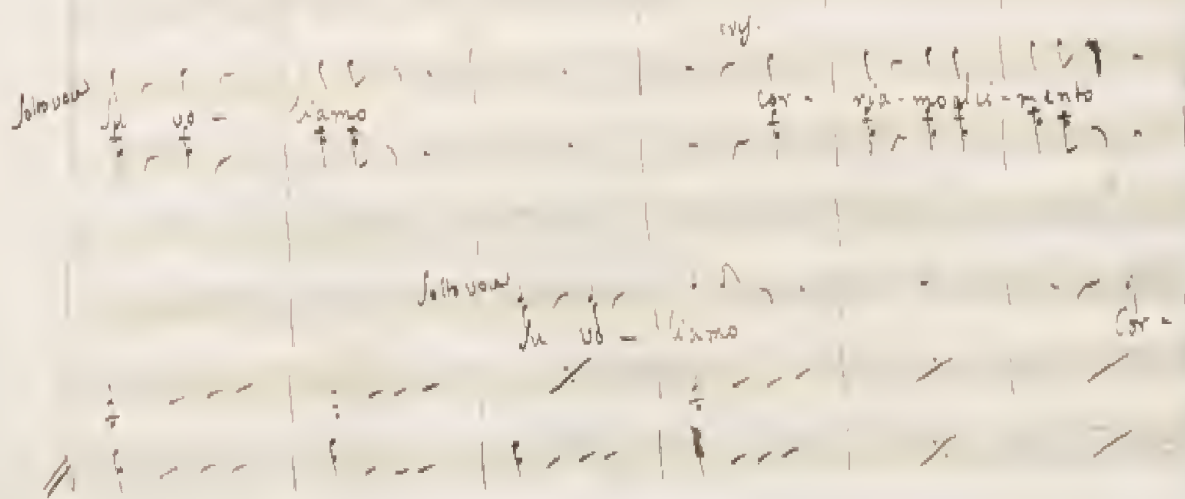 Sottovoce Su vo - liamo Cor - ria - mo al ci - mento
Sottovoce
Su vo - liamo Cor -